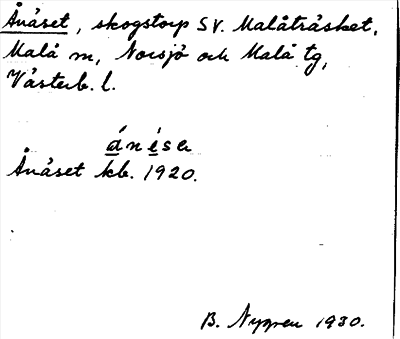 Ånäset, skogstorp SV. Malåträsket,
Malå sn, Norsjö och Malå tg,
Västerb. l.
Ånäset kb. 1920.
B. Nygren 1930.